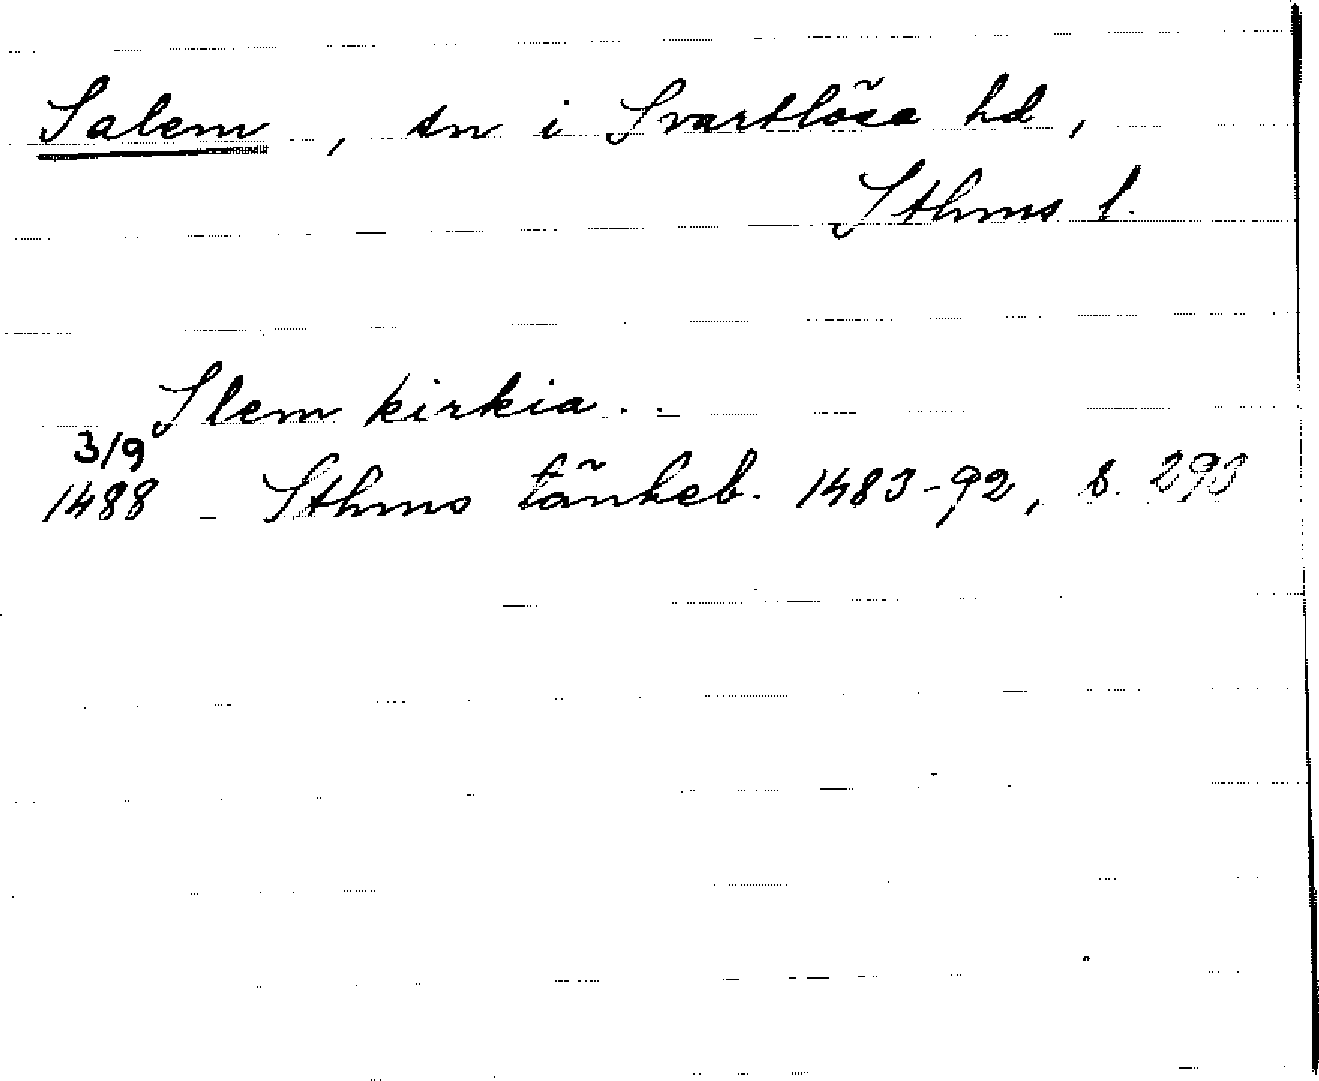 Salem, sn i Svartlösa hd,
Sthms l.
Slem kirkia. -
3/9
1488 - Sthms tänkeb. 1483-92, s. 293